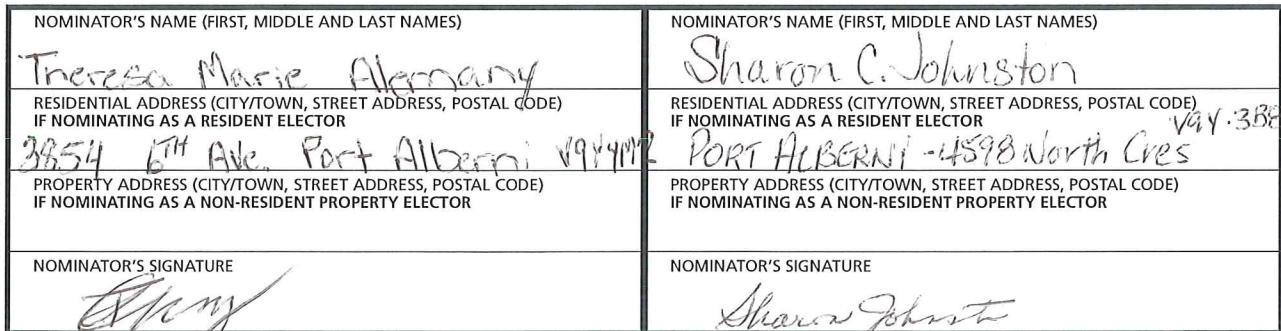 NOMINATOR'S NAME (FIRST, MIDDLE AND LAST NAMES)
Theresa Marie Alemany
RESIDENTIAL ADDRESS (CITY/TOWN, STREET ADDRESS, POSTAL CODE)
IF NOMINATING AS A RESIDENT ELECTOR
3854 6TH Ave. Port Alberni V9Y4M2
PROPERTY ADDRESS (CITY/TOWN, STREET ADDRESS, POSTAL CODE)
IF NOMINATING AS A NON-RESIDENT PROPERTY ELECTOR
NOMINATOR'S SIGNATURE
NOMINATOR'S NAME (FIRST, MIDDLE AND LAST NAMES)
Sharon C. Johnston
RESIDENTIAL ADDRESS (CITY/TOWN, STREET ADDRESS, POSTAL CODE)
IF NOMINATING AS A RESIDENT ELECTOR
V9Y·3B8
PORT ALBERNI -4598 North Cres
PROPERTY ADDRESS (CITY/TOWN, STREET ADDRESS, POSTAL CODE)
IF NOMINATING AS A NON-RESIDENT PROPERTY ELECTOR
NOMINATOR'S SIGNATURE
Sharon Johnst